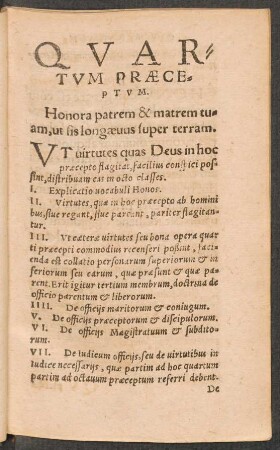 QVAR-
TVM PRÆCE-
PTVM.
Honora patrem & matrem tu-
am, ut sis longævus super terram.
VT virtutes quas Deus in hoc
præcepto flagitat, facilius conspici pos-
sint, distribuam eas in octo classes.
I. Explicatio vocabuli Honos.
II. Virtutes, quæ in hoc præcepto ab homini
bus, siue regant, siue pareant, pariter flagitan-
tur.
III. Vt cætera virtutes seu bona opera quar
ti præcepti commodius recenseri possint, faci-
enda est collatio personarum superiorum & in
feriorum seu earum, quæ præsunt & quæ pa-
rent. Erit igitur tertium membrum, doctrina de
officio parentum & liberorum.
IIII. De officijs maritorum & coniugum.
V. De officijs præceptorum & discipulorum.
VI. De officijs Magistratuum & subdito-
rum.
VII. De iudicum officijs, seu de virtutibus in
iudice necessarijs, quæ partim ad hoc quartum
partim ad octauum præceptum referri debent.
De